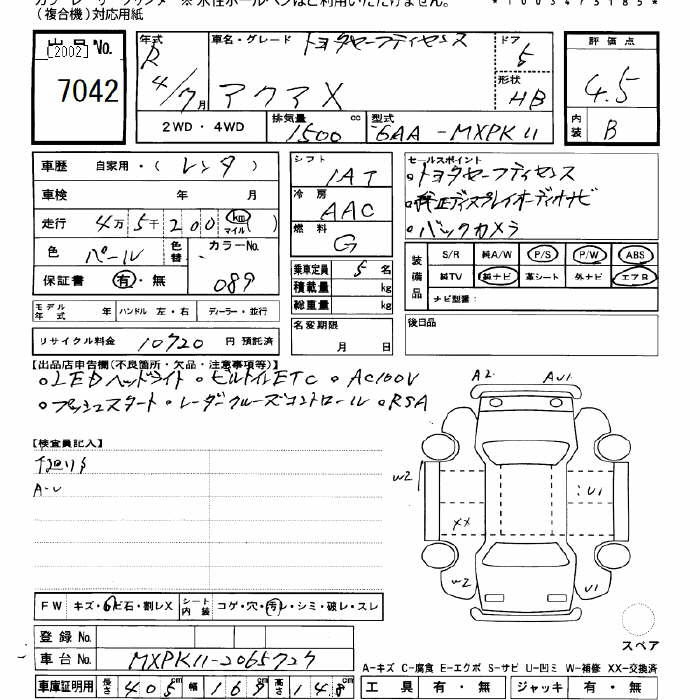 (複合機)対応用紙
*1003475185*
出品No.
[2002]
7042
年式 R 4/7月
車名・グレード トヨタセーフティセンス
アクアX
ドア 5
形状 HB
評価点
4.5
内装 B
2WD・4WD
排気量 1500 cc
型式 6AA-MXPK11
車歴 自家用・(レンタ)
車検 年 月
走行 4万5千200 km マイル( )
色 パール 色替 カラーNo. 089
保証書 有・無
モデル年式 年 ハンドル 左・右 ディーラー・並行
リサイクル料金 10720 円 預託済
シフト IAT
冷房 AAC
燃料 G
乗車定員 5 名
積載量 kg
総重量 kg
名変期限 月 日
セールスポイント
・トヨタセーフティセンス
・純正ディスプレイオーディオナビ
・バックカメラ
装備品 S/R 純A/W P/S P/W ABS
純TV 純ナビ 革シート 外ナビ エアB
ナビ型番:
後日品
【出品店申告欄(不良箇所・欠品・注意事項等)】
・LEDヘッドライト ・ビルトインETC ・AC100V
・プッシュスタート ・レーダークルーズコントロール ・RSA
【検査員記入】
A-U
A2 AU1
W2 U1
XX
W2 U1
スペア
FW キズ・飛石・割レX シート内装 コゲ・穴・汚レ・シミ・破レ・スレ
登録No.
車台No. MXPK11-2065727
車庫証明用 長さ 405cm 幅 169cm 高さ 148cm
A-キズ C-腐食 E-エクボ S-サビ U-凹ミ W-補修 XX-交換済
工具 有・無 ジャッキ 有・無